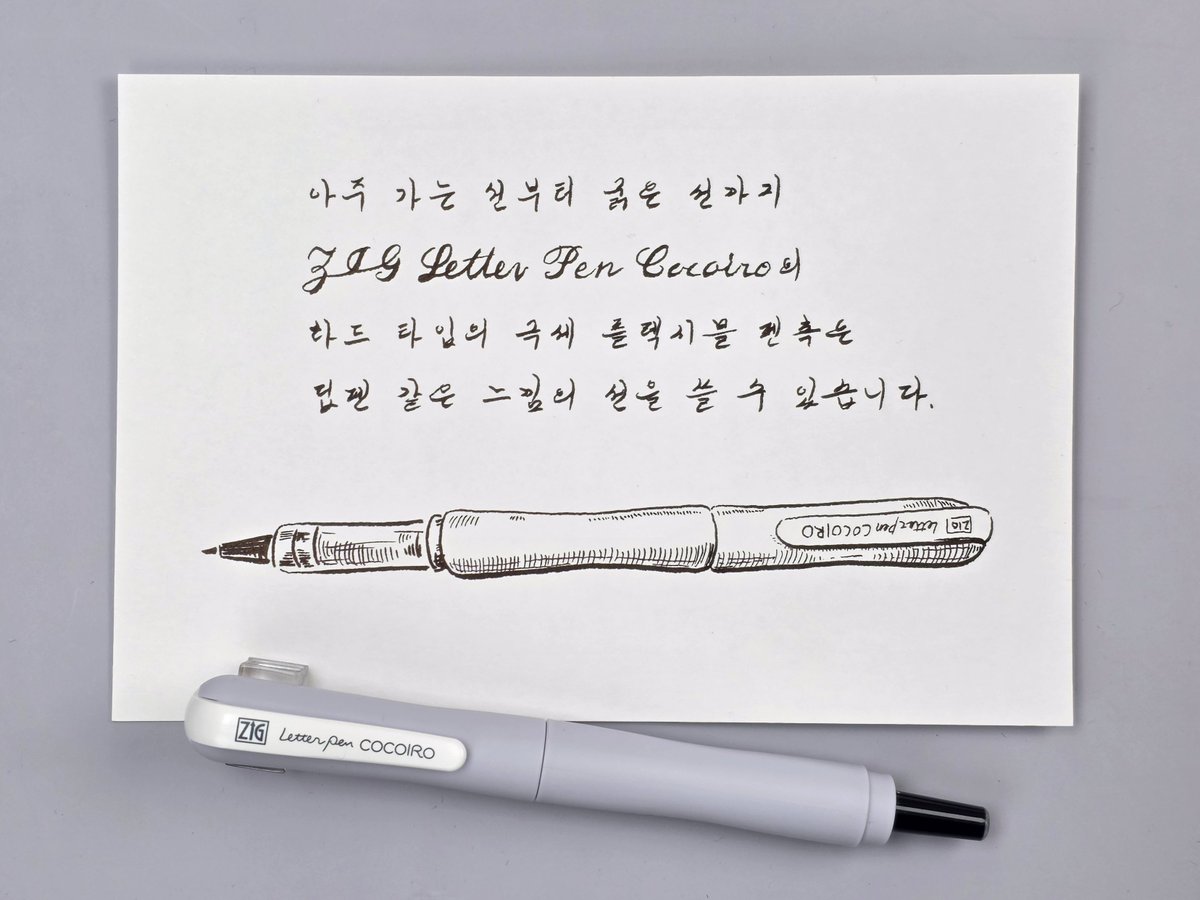 아주 가는 선부터 굵은 선까지
ZIG Letter Pen Cocoiro의
하드 타입의 극세 플렉시블 펜촉은
딥펜 같은 느낌의 선을 쓸 수 있습니다.
ZIG Letter pen COCOIRO
ZIG Letter pen COCOIRO